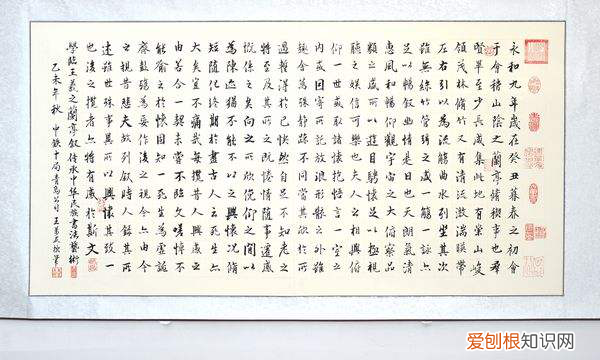 永和九年歲在癸丑暮春之初會
于會稽山陰之蘭亭脩稧事也羣
賢畢至少長咸集此地有崇山峻
領茂林脩竹又有清流激湍暎帶
左右引以為流觴曲水列坐其次
雖無絲竹管弦之盛一觴一詠亦
足以暢敘幽情是日也天朗氣清
惠風和暢仰觀宇宙之大俯察品
類之盛所以遊目騁懷足以極視
聽之娛信可樂也夫人之相與俯
仰一世或取諸懷抱悟言一室之
內或因寄所託放浪形骸之外雖
趣舍萬殊靜躁不同當其欣於所
遇暫得於己快然自足不知老之
將至及其所之既惓情隨事遷感
慨係之矣向之所欣俛仰之閒以
為陳迹猶不能不以之興懷況脩
短隨化終期於盡古人云死生亦
大矣豈不痛哉每攬昔人興感之
由若合一契未嘗不臨文嗟悼不
能喻之於懷固知一死生為虛誕
齊彭殤為妄作後之視今亦由今
之視昔悲夫故列敘時人錄其所
述雖世殊事異所以興懷其致一
也後之攬者亦將有感於斯文
學臨王羲之蘭亭敘傳承中華民族書法藝術
乙未年秋 中鐵十局青島公司 王
爱刨根知识网